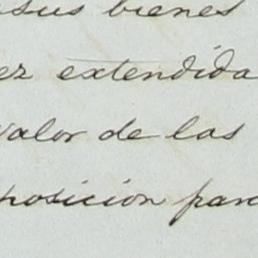 sus bienes
ez extendida
valor de las
posicion para